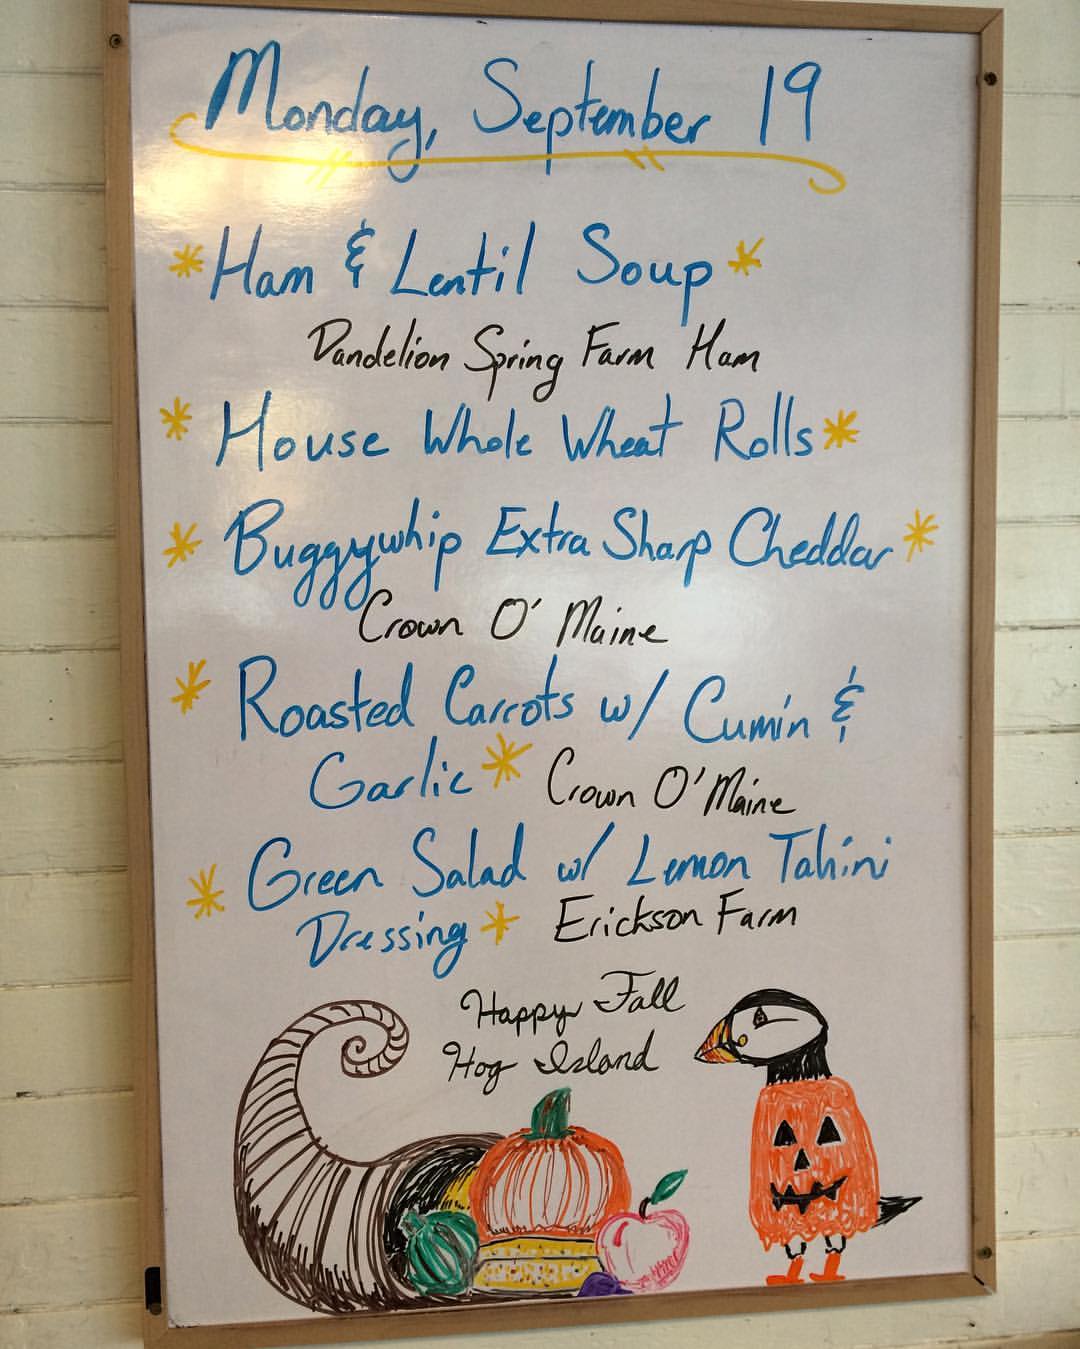 Monday, September 19
*Ham & Lentil Soup*
Dandelion Spring Farm Ham
* House Whole Wheat Rolls*
* Buggywhip Extra Sharp Cheddar*
Crown O' Maine
* Roasted Carrots w/ Cumin &
Garlic* Crown O' Maine
* Green Salad w/ Lemon Tahini
Dressing* Erickson Farm
Happy Fall
Hog Island